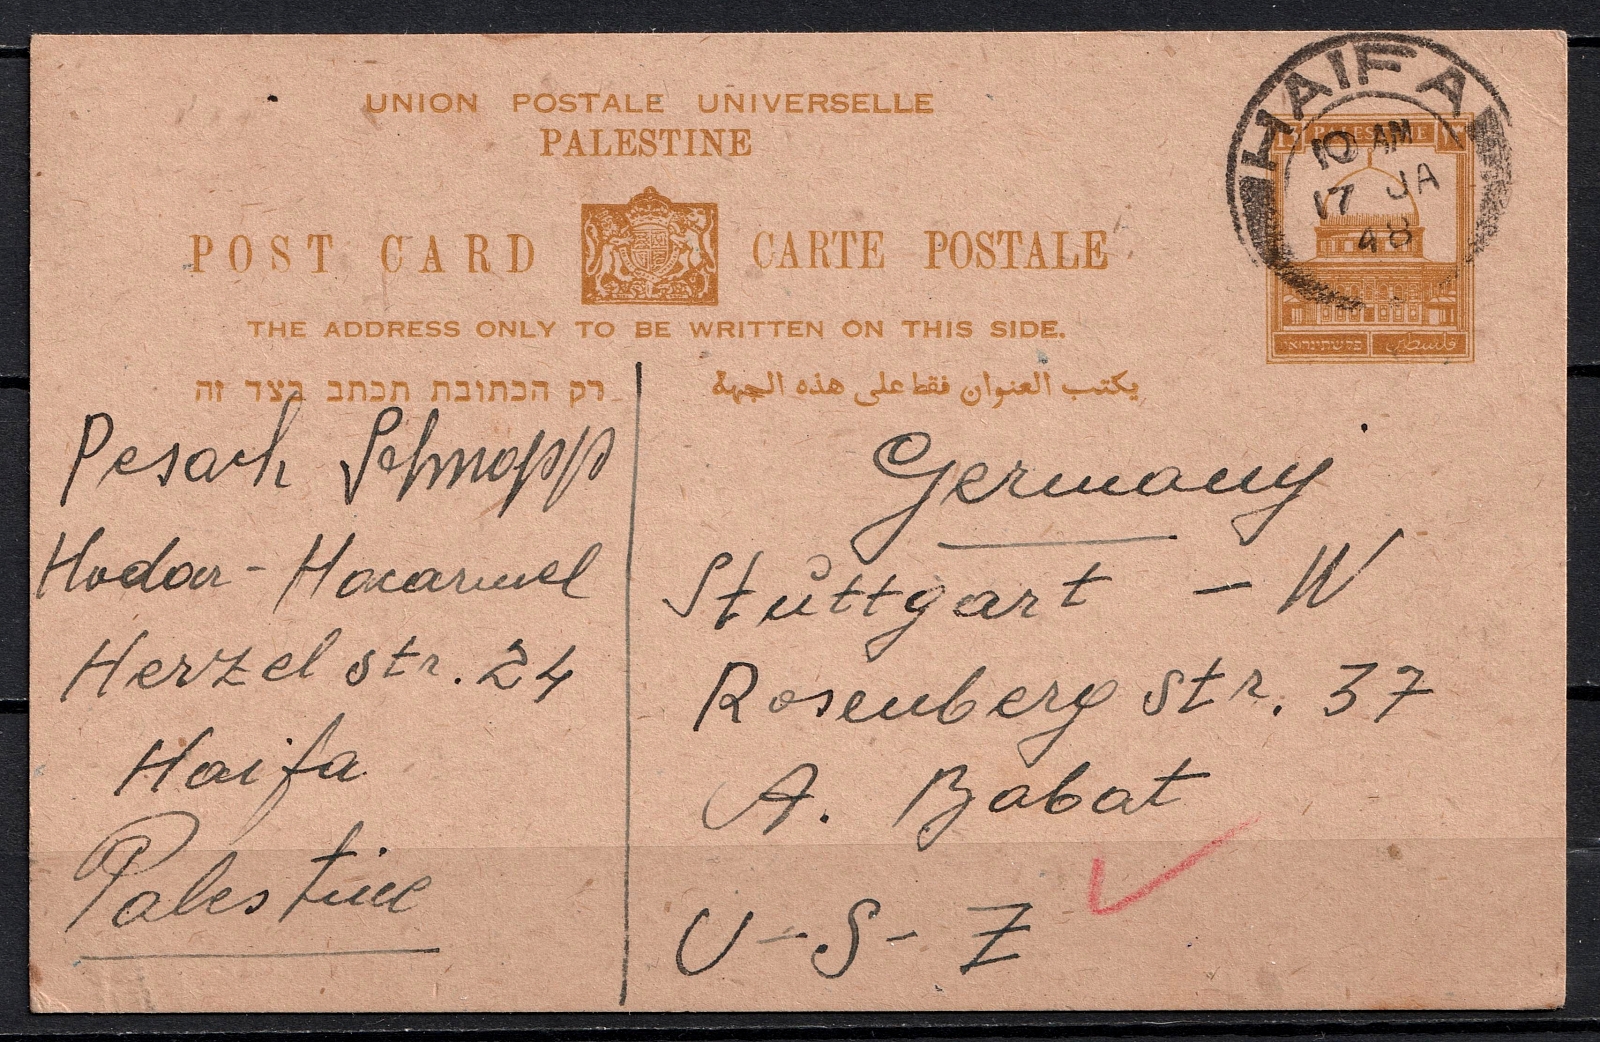 UNION POSTALE UNIVERSELLE
PALESTINE
POST CARD CARTE POSTALE
THE ADDRESS ONLY TO BE WRITTEN ON THIS SIDE.
רק הכתובת תכתב בצד זה
يكتب العنوان فقط على هذه الجهة
HAIFA
10 AM
17 JA
48
PALESTINE
פלשתינה א״י
فلسطين
Pesach Schnapp
Hadar - Hacarmel
Herzel str. 24
Haifa
Palestine
Germany
Stuttgart - W
Rosenberg str. 37
A. Babat
U-S-Z